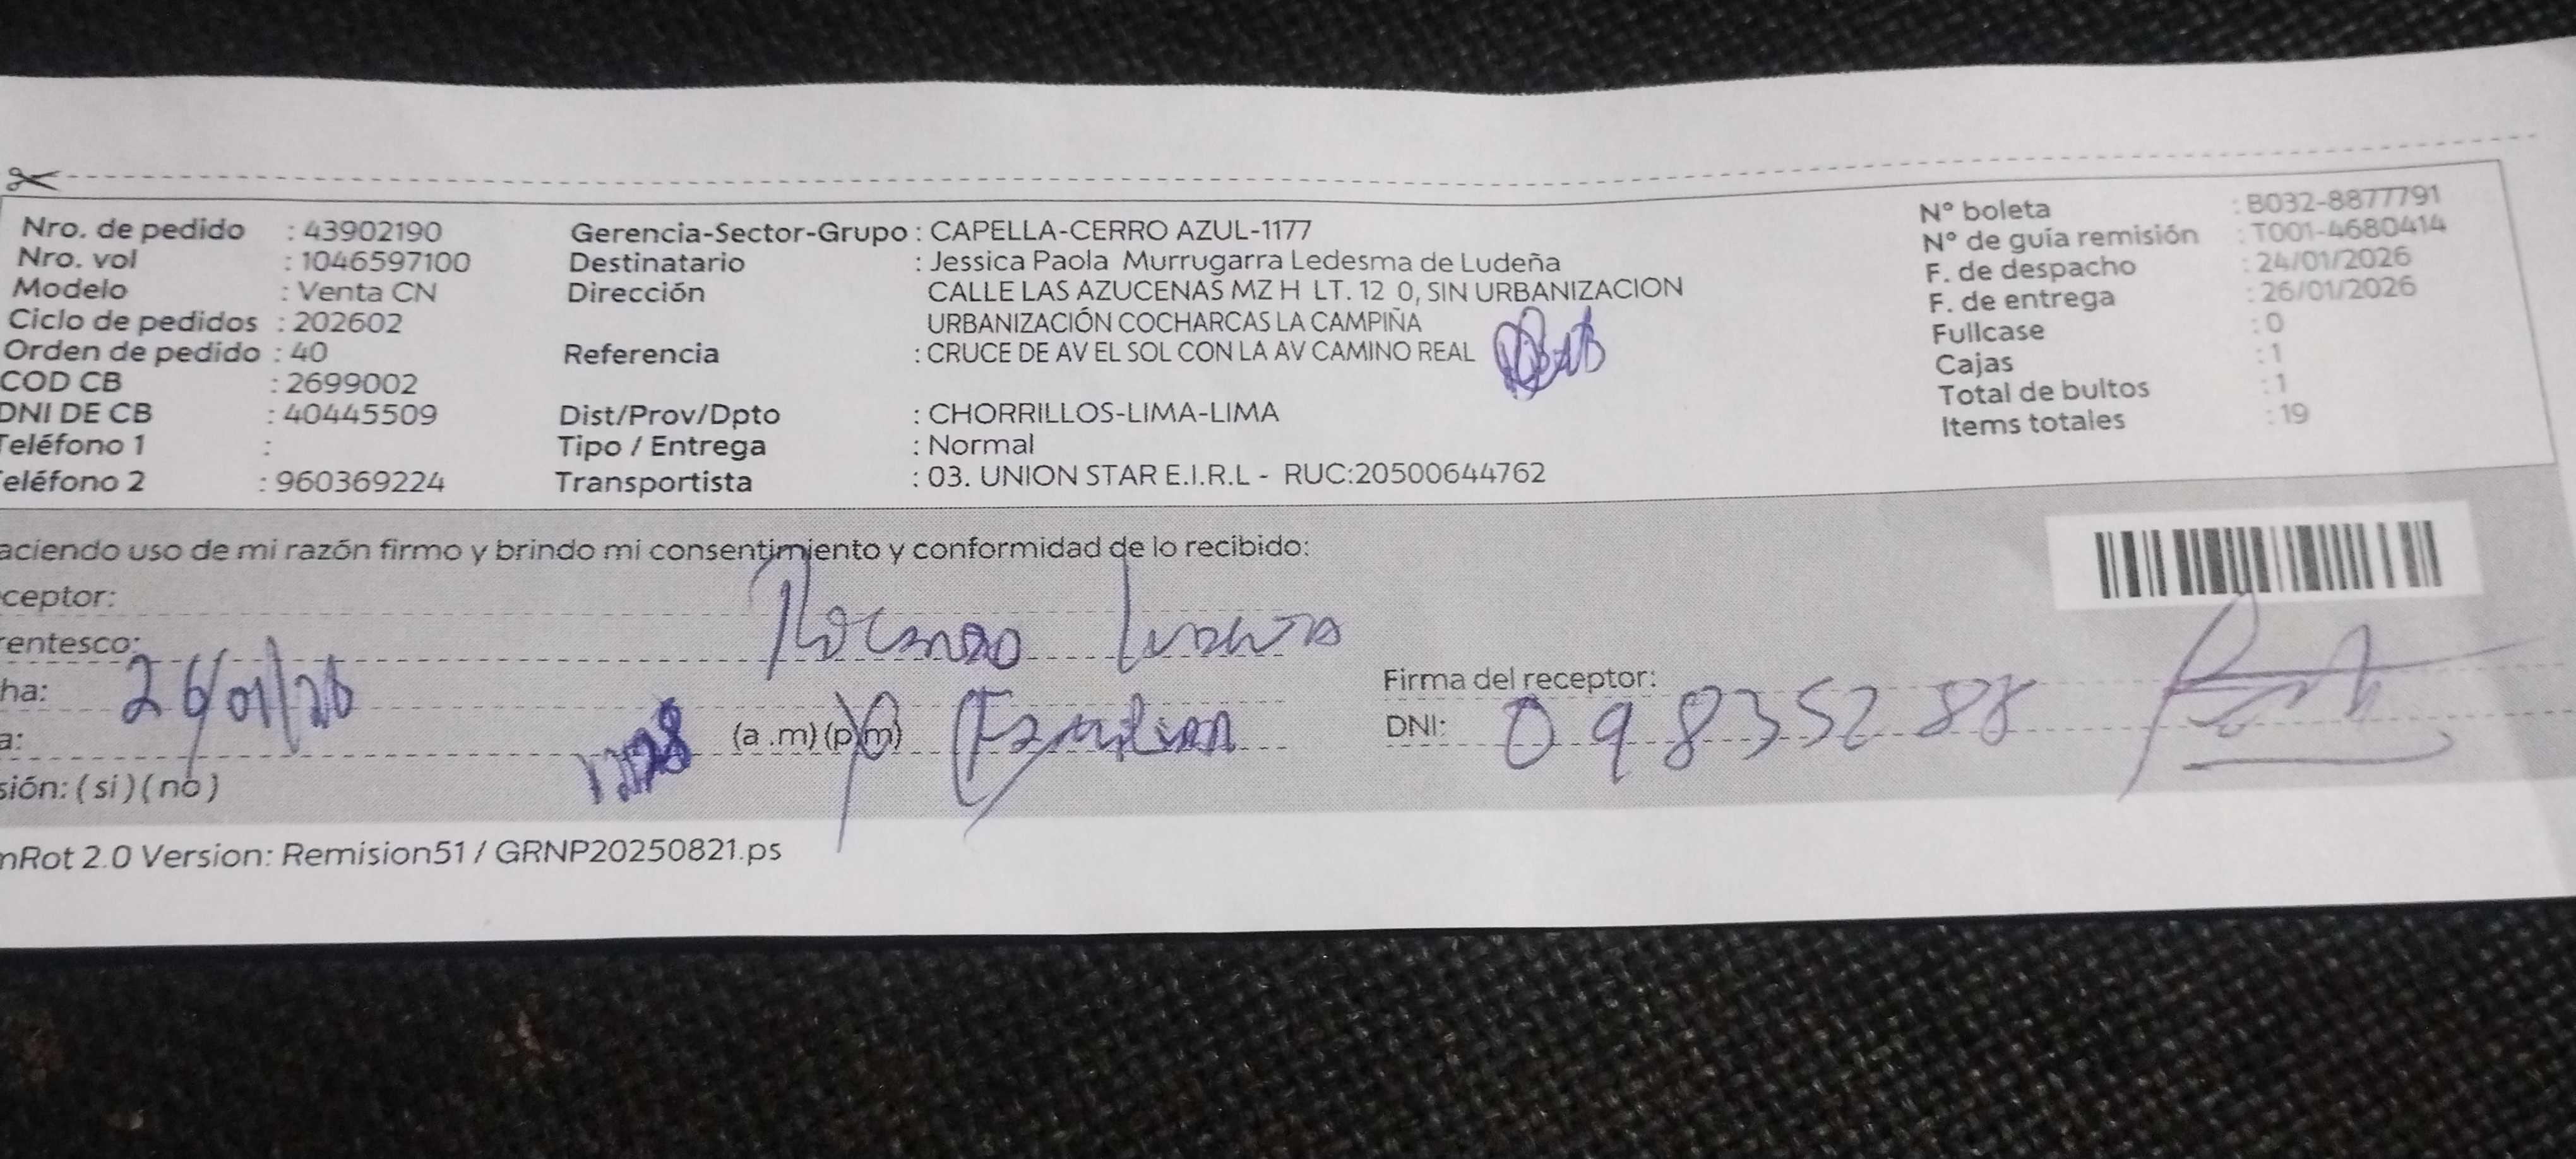 Nro. de pedido : 43902190
Nro. vol : 1046597100
Modelo : Venta CN
Ciclo de pedidos : 202602
Orden de pedido : 40
COD CB : 2699002
DNI DE CB : 40445509
Teléfono 1 :
eléfono 2 : 960369224
Gerencia-Sector-Grupo : CAPELLA-CERRO AZUL-1177
Destinatario : Jessica Paola Murrugarra Ledesma de Ludeña
Dirección CALLE LAS AZUCENAS MZ H LT. 12 0, SIN URBANIZACION
URBANIZACIÓN COCHARCAS LA CAMPIÑA
Referencia : CRUCE DE AV EL SOL CON LA AV CAMINO REAL
Dist/Prov/Dpto : CHORRILLOS-LIMA-LIMA
Tipo / Entrega : Normal
Transportista : 03. UNION STAR E.I.R.L - RUC:20500644762
N° boleta : B032-8877791
N° de guía remisión : T001-4680414
F. de despacho : 24/01/2026
F. de entrega : 26/01/2026
Fullcase : 0
Cajas : 1
Total de bultos : 1
Items totales : 19
aciendo uso de mi razón firmo y brindo mi consentimiento y conformidad de lo recibido:
ceptor:
rentesco:
ha: 26/01/26
a: (a .m) (p.m)
Firma del receptor:
DNI: 09835288
sión: ( si ) ( no )
nRot 2.0 Version: Remision51 / GRNP20250821.ps